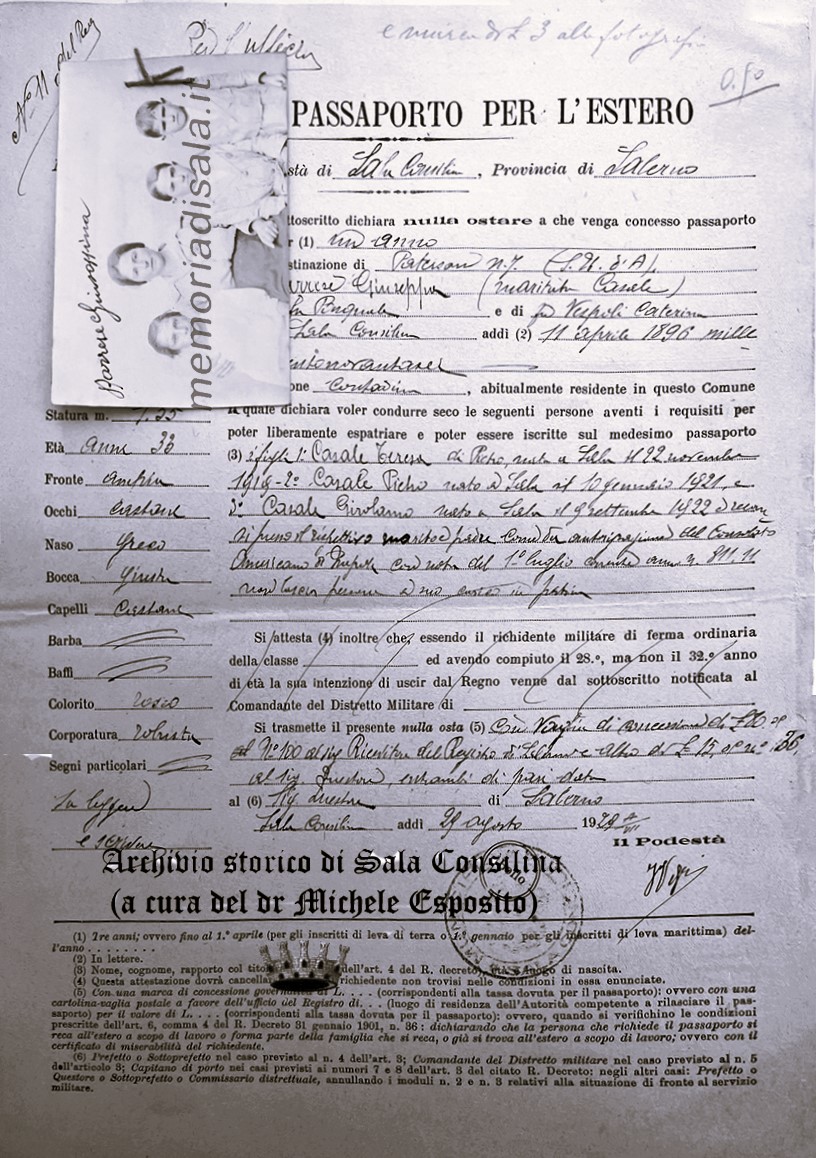 Nº 11 del Reg
Per l'ufficio
0.50
PASSAPORTO PER L'ESTERO
stà di Sala Consilina, Provincia di Salerno
ttoscritto dichiara nulla ostare a che venga concesso passaporto
r (1) un anno
stinazione di Paterson N.J. (S.U. d'A).
Giuseppa (maritata Casale)
e di fu Vespoli Caterina
Sala Consilina addì (2) 11 aprile 1896 mille
entonovantasei
one contadina, abitualmente residente in questo Comune
la quale dichiara voler condurre seco le seguenti persone aventi i requisiti per
poter liberamente espatriare e poter essere iscritte sul medesimo passaporto
(3) i figli 1º Casale Teresa di Pietro, nata a Sala il 22 novembre
1919 - 2º Casale Pietro nato a Sala il 10 gennaio 1921, e
3º Casale Girolamo nato a Sala il 9 settembre 1922
rispettivo marito e padre come da autorizzazione del Consolato
Americano di Napoli con nota del 1º luglio corrente anno n. 811.11
non lascia persone a suo carico in patria
Si attesta (4) inoltre che, essendo il richidente militare di ferma ordinaria
della classe ed avendo compiuto il 28.º, ma non il 32.º anno
di età la sua intenzione di uscir dal Regno venne dal sottoscritto notificata al
Comandante del Distretto Militare di
Si trasmette il presente nulla osta (5) con Vaglia di concessione di
Nº 100 al sig Ricevitore del Registro di Sala e altro di £ 15,
al Sig. Questore, entrambi di pari data
al (6) Sig. Questore di Salerno
Sala Consilina addì 29 agosto 1929
Il Podestà
Statura m. 1.55
Età anni 33
Fronte ampia
Occhi castani
Naso greco
Bocca giusta
Capelli castani
Barba
Baffi
Colorito roseo
Corporatura robusta
Segni particolari
Sa leggere
e scrivere
memoriadisala.it
Archivio storico di Sala Consilina
(a cura del dr Michele Esposito)
(1) Tre anni; ovvero fino al 1.º aprile (per gli inscritti di leva di terra o 1.º gennaio per gli inscritti di leva marittima) del-
l'anno . . . . . . .
(2) In lettere.
(3) Nome, cognome, rapporto col tito dell'art. 4 del R. decreto, luogo di nascita.
(4) Questa attestazione dovrà cancellar richiedente non trovisi nelle condizioni in essa enunciate.
(5) Con una marca di concessione governativa di L. . . . (corrispondenti alla tassa dovuta per il passaporto): ovvero con una
cartolina-vaglia postale a favore dell'ufficio del Registro di. . . (luogo di residenza dell'Autorità competente a rilasciare il pas-
saporto) per il valore di L. . . . (corrispondenti alla tassa dovuta per il passaporto): ovvero, quando si verifichino le condizioni
prescritte dell'art. 6, comma 4 del R. Decreto 31 gennaio 1901, n. 36 : dichiarando che la persona che richiede il passaporto si
reca all'estero a scopo di lavoro o forma parte della famiglia che si reca, o già si trova all'estero a scopo di lavoro; ovvero con il
certificato di miserabilità del richiedente.
(6) Prefetto o Sottoprefetto nel caso previsto al n. 4 dell'art. 3; Comandante del Distretto militare nel caso previsto al n. 5
dell'articolo 3; Capitano di porto nei casi previsti ai numeri 7 e 8 dell'art. 3 del citato R. Decreto: negli altri casi: Prefetto o
Questore o Sottoprefetto o Commissario distrettuale, annullando i moduli n. 2 e n. 3 relativi alla situazione di fronte al servizio
militare.